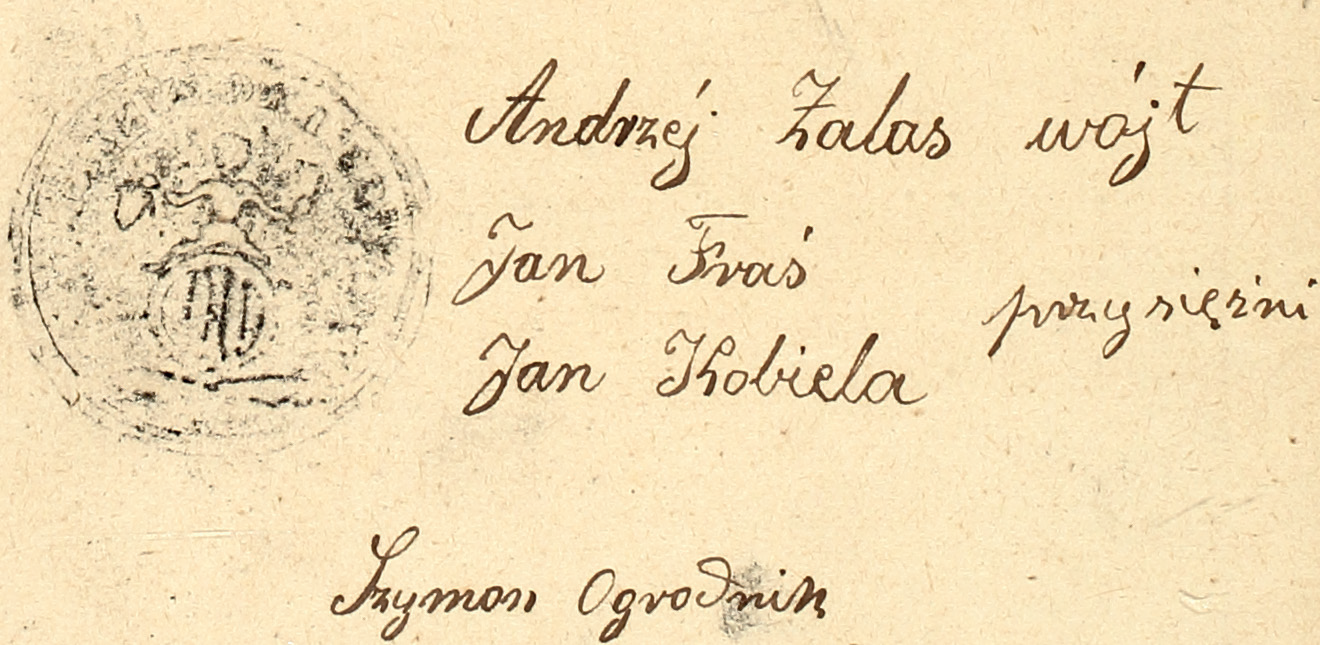 Andrzéj Zalas wójt
Jan Fraś
przysiężni
Jan Kobiela
Szymon Ogrodnik